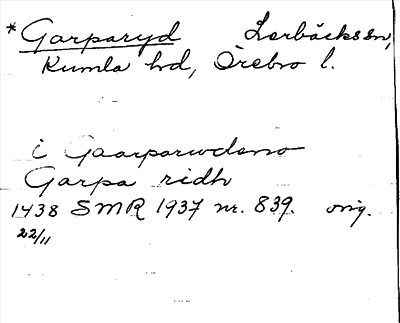 *Garparyd Lerbäcks sn,
Kumla hd, Örebro l.
i Gaarparwdsmo
Garpa ridh
1438 SMR 1937 nr. 839. orig.
22/11